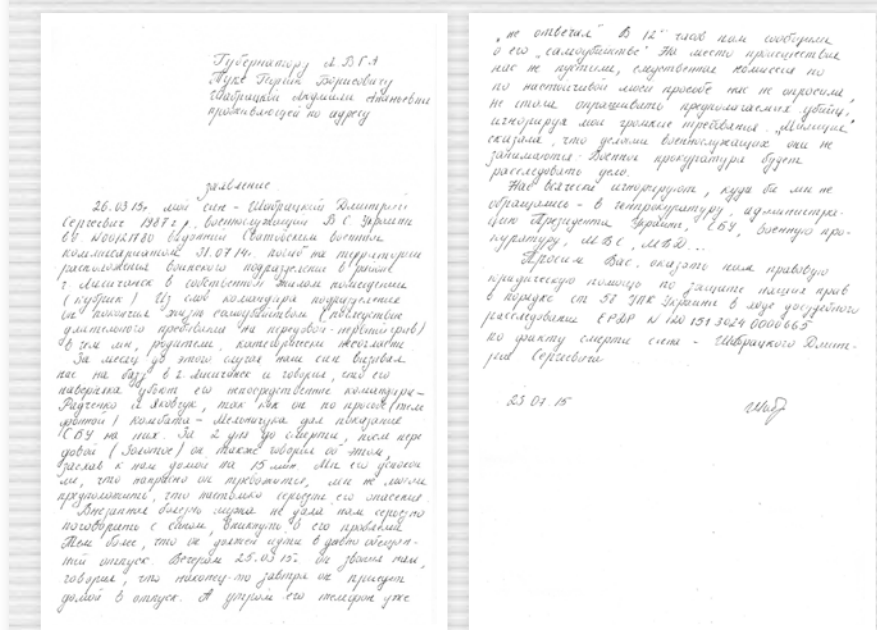 Губернатору ЛВГА
Туке Борисовичу
Шабрацкой Людмилы Ананьевны
проживающей по адресу
заявление.
26.03.15г. мой сын - Шабрацкий Дмитрий
Сергеевич 1987 г.р., военнослужащий В.С. Украины
выданный Сватовским военным
комиссариатом 31.07.14г. погиб на территории
расположения воинского подразделения в районе
г. Лисичанск в собственном жилом помещении
(кубрик). Из слов командира подразделения
он покончил жизнь самоубийством (вследствие
длительного пребывания на передовой - нервный срыв)
в чем мы, родители, категорически несогласны.
За месяц до этого случая наш сын вызывал
нас на базу в г. Лисичанск и говорил, что его
наверняка убьют его непосредственные командиры -
Радченко и Яковчук, так как он по просьбе
комбата - Мельничука дал показания
СБУ на них. За 2 дня до смерти, после пере
довой (Золотое) он также говорил об этом,
заехав к нам домой на 15 мин. Мы его успокои
ли, что напрасно он тревожится, мы не могли
предположить, что настолько серьезны его опасения.
Внезапная болезнь мужа не дала нам серьезно
поговорить с сыном, вникнуть в его проблемы.
Тем более, что он должен идти в давно обещан-
ный отпуск. Вечером 25.03.15г. он звонил нам,
говорил, что наконец-то завтра он приедет
домой в отпуск. А утром его телефон уже
„не отвечал" В 12°° часов нам сообщили
о его „самоубийстве" На место происшествия
нас не пустили, следственная комиссия по
по настойчивой моей просьбе нас не опросила,
не стала опрашивать предполагаемых убийц,
игнорируя мои громкие требования. „Милиция"
сказала, что делами военнослужащих они не
занимаются. Военная прокуратура будет
расследовать дело.
Нас всячески игнорируют, куда бы мы не
обращались - в генпрокуратуру, администра-
цию Президента Украины, СБУ, военную про-
куратуру, МВС, МВД...
Просим Вас, оказать нам правовую
юридическую помощь по защите наших прав
в порядке ст. УПК Украины в ходе досудебного
расследования ЕРДР
по факту смерти сына - Шабрацкого Дмит-
рия Сергеевича
23 07 15